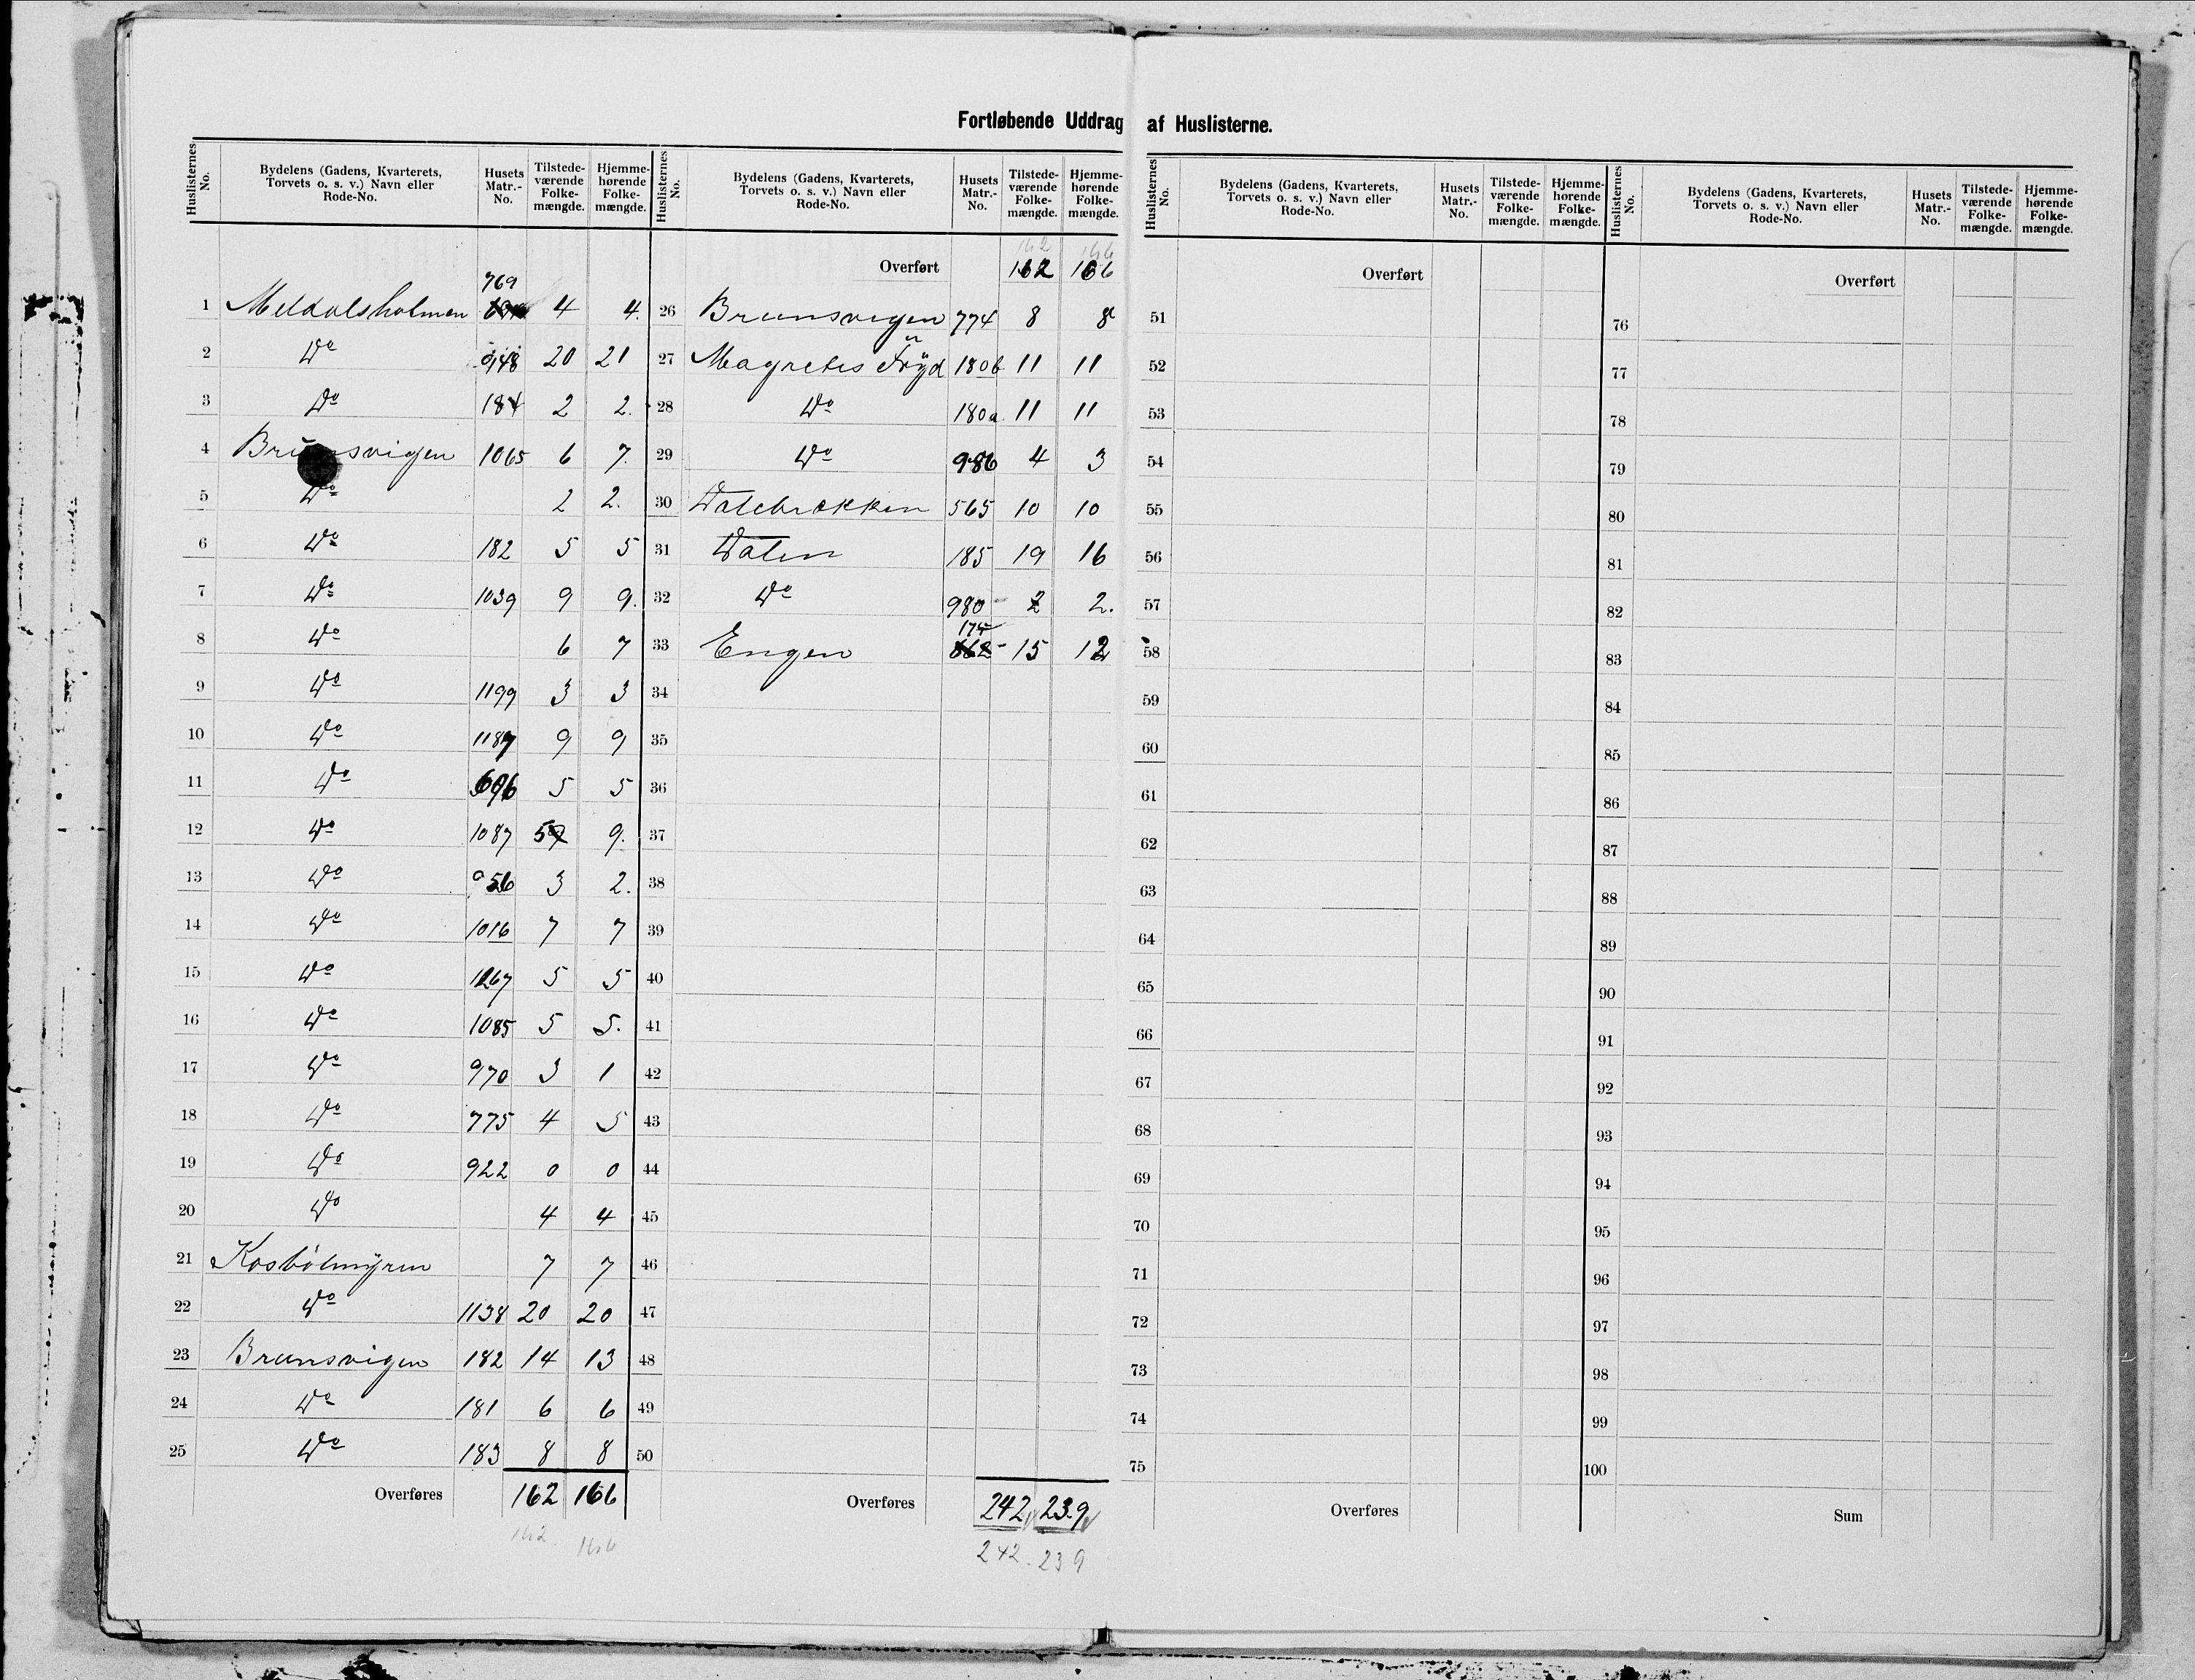 Fortløbende Uddrag af Huslisterne.
Huslisternes No. Bydelens (Gadens, Kvarterets, Torvets o. s. v.) Navn eller Rode-No. Husets Matr.-No. Tilstedeværende Folkemængde. Hjemmehørende Folkemængde.
1 Meldalsholmen 769 4 4.
2 Do 948 20 21
3 Do 184 2 2.
4 Brunsvigen 1065 6 7.
5 Do 2 2.
6 Do 182 5 5
7 Do 1039 9 9.
8 Do 6 7
9 Do 1199 3 3
10 Do 1187 9 9
11 Do 696 5 5
12 Do 1087 5 9.
13 Do 956 3 2.
14 Do 1016 7 7
15 Do 1267 5 5
16 Do 1085 5 5.
17 Do 970 3 1
18 Do 775 4 5
19 Do 922 0 0
20 Do 4 4
21 Kosbölmyren 7 7
22 Do 1138 20 20
23 Brunsvigen 182 14 13
24 Do 181 6 6
25 Do 183 8 8
Overføres 162 166
162 166
Huslisternes No. Bydelens (Gadens, Kvarterets, Torvets o. s. v.) Navn eller Rode-No. Husets Matr.-No. Tilstedeværende Folkemængde. Hjemmehørende Folkemængde.
162 166
Overført 162 166
26 Brunsvigen 774 8 8
27 Magretes Fryd 180b 11 11
28 Do 180a 11 11
29 Do 986 4 3
30 Dalebrækken 565 10 10
31 Dalen 185 19 16
32 Do 980 2 2.
33 Engen 174 15 12
34
35
36
37
38
39
40
41
42
43
44
45
46
47
48
49
50
Overføres 242 239
242. 239
Huslisternes No. Bydelens (Gadens, Kvarterets, Torvets o. s. v.) Navn eller Rode-No. Husets Matr.-No. Tilstedeværende Folkemængde. Hjemmehørende Folkemængde.
Overført
51
52
53
54
55
56
57
58
59
60
61
62
63
64
65
66
67
68
69
70
71
72
73
74
75
Overføres
Huslisternes No. Bydelens (Gadens, Kvarterets, Torvets o. s. v.) Navn eller Rode-No. Husets Matr.-No. Tilstedeværende Folkemængde. Hjemmehørende Folkemængde.
Overført
76
77
78
79
80
81
82
83
84
85
86
87
88
89
90
91
92
93
94
95
96
97
98
99
100
Sum